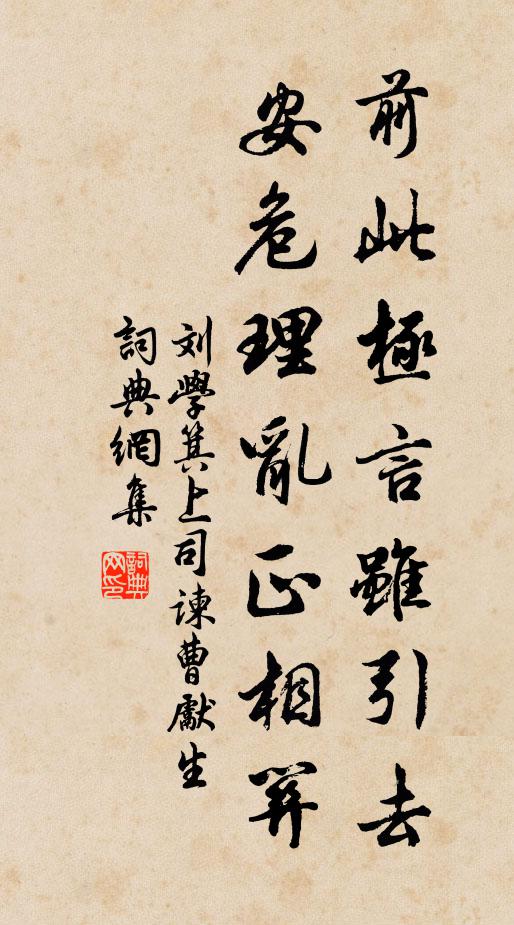 前此極言雖引去
安危理亂正相算
刘學箕上司諫曹獻生
詞典網集
詞典網印